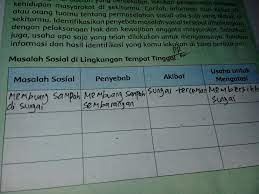 kehidupan masyarakat di sekitarmu. Carilah informasi dari
atau orang tuamu tentang permasalahan sosial yang ada di
sekitarmu. Identifikasikan penyebab masalah sosial tersebut
dengan pelaksanaan hak dan kewajiban anggota masyarakat.
juga, usaha apa saja yang telah dilakukan untuk mengatasinya. Tuliskan
informasi dan hasil identifikasi yang kamu lakukan di
Masalah Sosial di Lingkungan Tempat Tinggal
Masalah Sosial Penyebab Akibat Usaha untuk Mengatasi
Membuang Sampah di sungai
Membuang Sampah Sembarangan
Sungai tercemar
Sungai